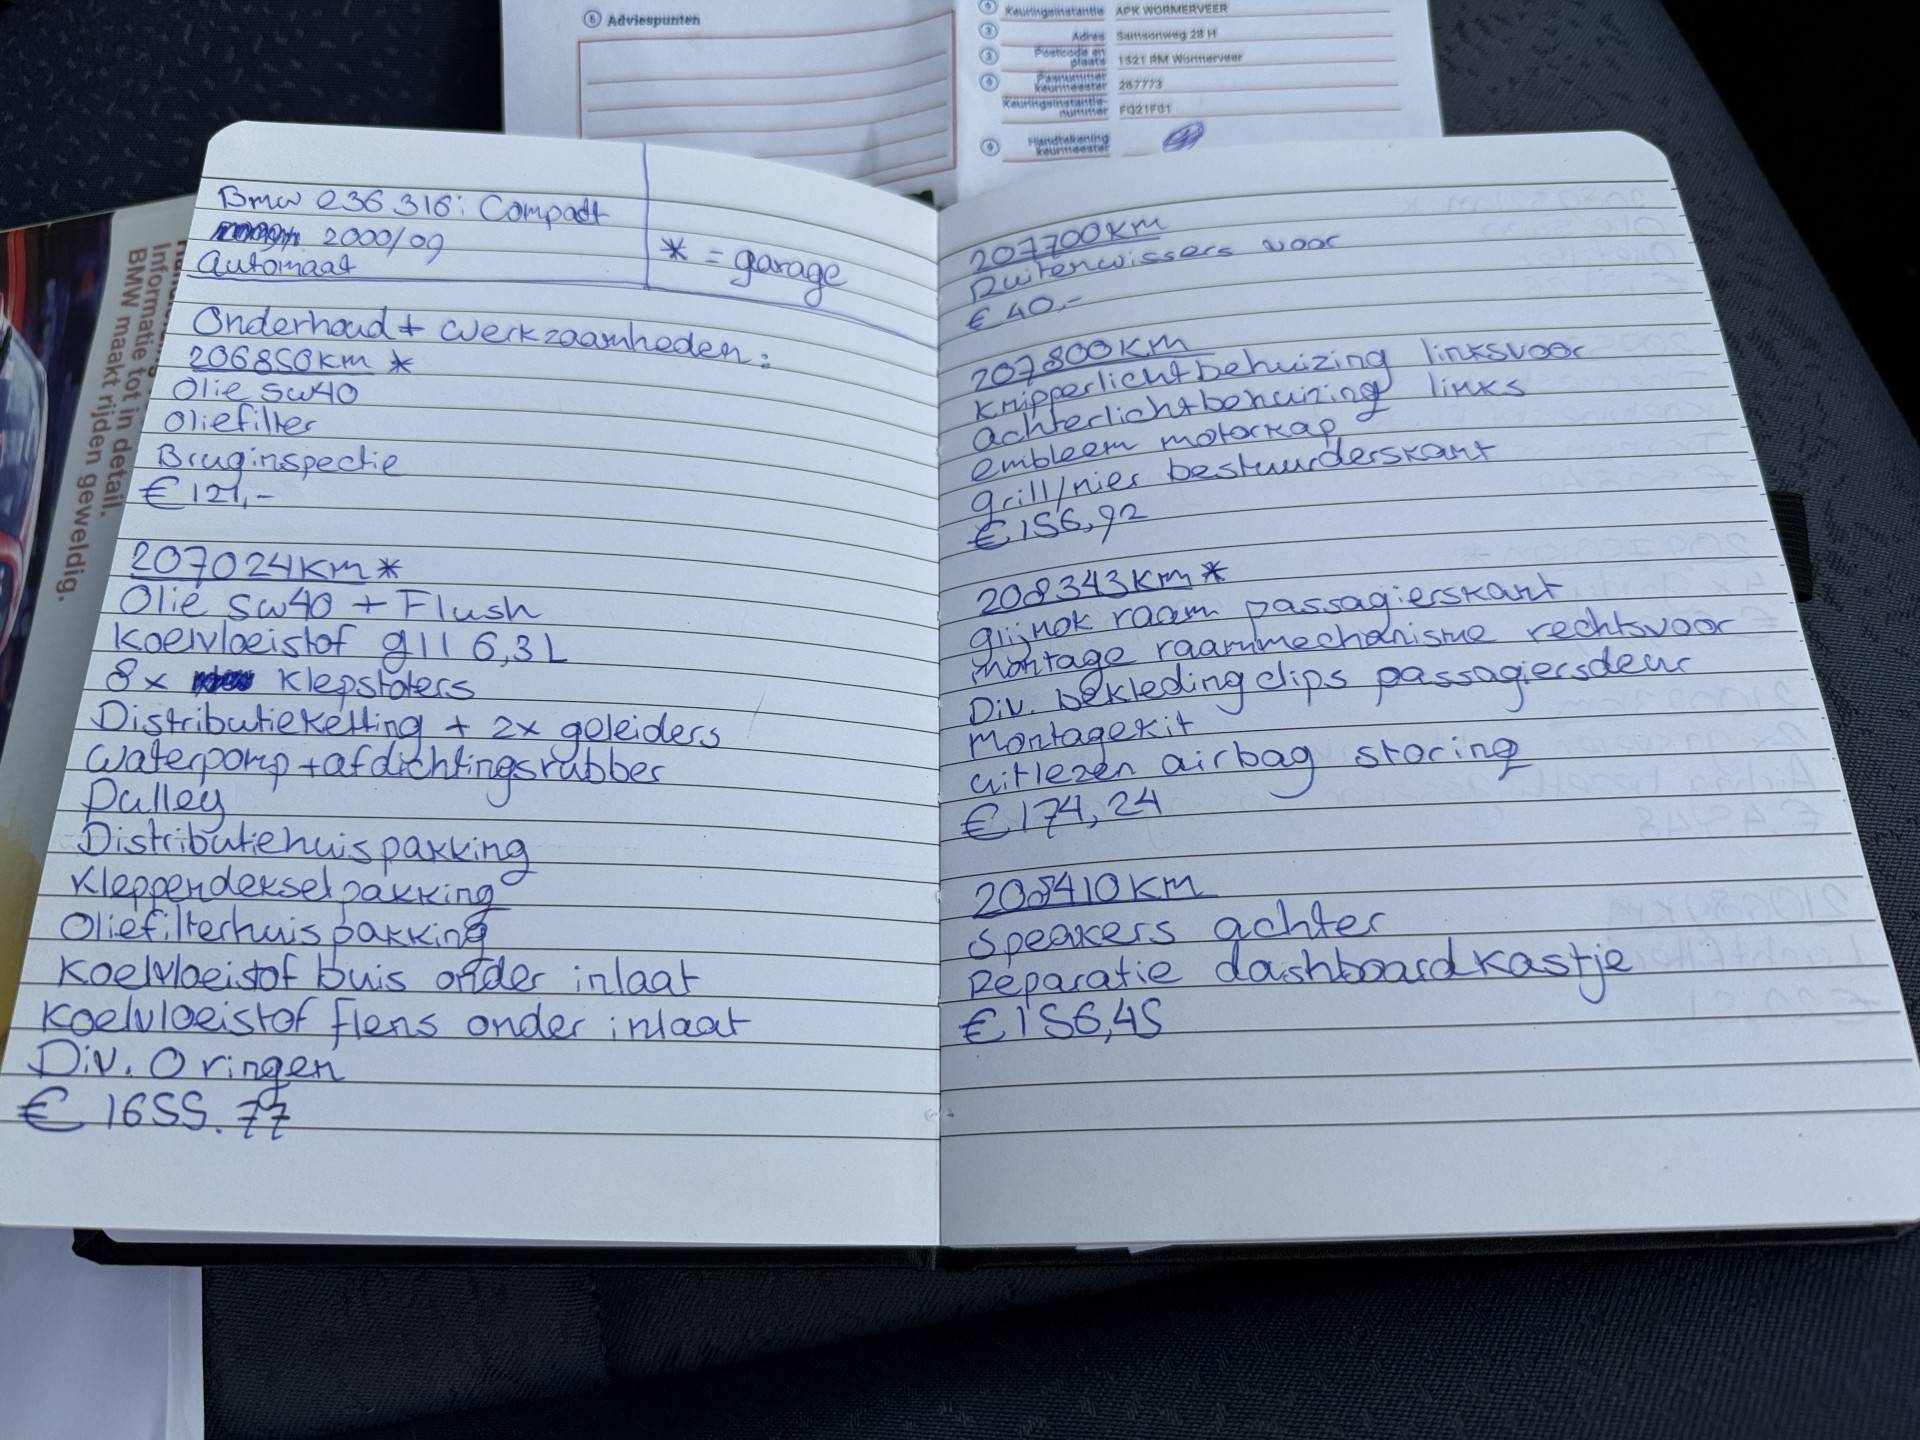 ⑥ Adviespunten
Keuringsinstantie APK WORMERVEER
Adres Samsonweg 28 H
Postcode en plaats 1521 RM Wormerveer
Pasnummer keurmeester 267773
Keuringsinstantie-nummer FQ21F01
Handtekening keurmeester
Informatie tot in detail.
BMW maakt rijden geweldig.
Bmw e36 316i Compact
2000/09
Automaat
* = garage
Onderhoud + werkzaamheden:
206850km *
Olie 5w40
Oliefilter
Bruginspectie
€ 121,-
207024km *
Olie 5w40 + Flush
Koelvloeistof g11 6,3L
8x Klepstoters
Distributieketting + 2x geleiders
Waterpomp + afdichtingsrubber
Pulley
Distributiehuispakking
Kleppendekselpakking
Oliefilterhuispakking
Koelvloeistof buis onder inlaat
Koelvloeistof flens onder inlaat
Div. O ringen
€ 1655.77
207700km
Ruitenwissers voor
€ 40,-
207800km
Knipperlichtbehuizing linksvoor
achterlichtbehuizing links
embleem motorkap
grill/nier bestuurderskant
€ 156,92
208343km *
glijnok raam passagierskant
montage raammechanisme rechtsvoor
Div. bekleding clips passagiersdeur
Montagekit
uitlezen airbag storing
€ 174,24
208410km
Speakers achter
Reparatie dashboardkastje
€ 156,45